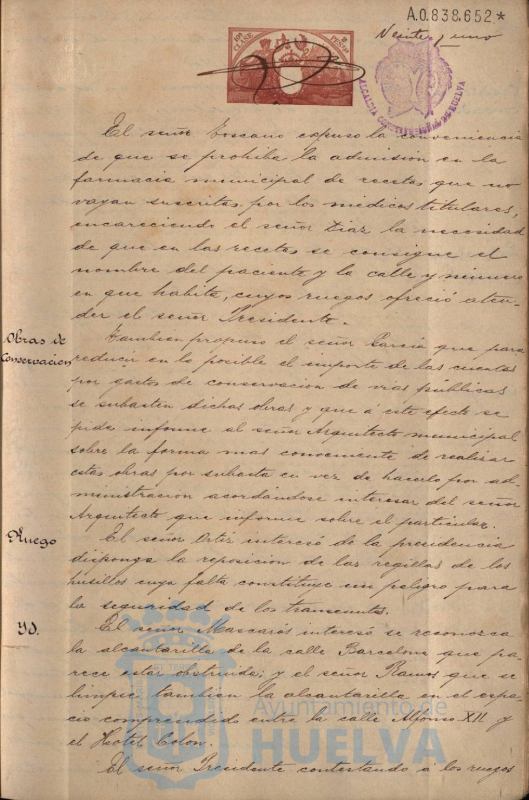 A.0.838.652*
Veintiuno
10ª CLASE
2 PESETAS
ALCALDIA CONSTITUCIONAL DE HUELVA
El señor Toscano expuso la conveniencia
de que se prohiba la admisión en la
farmacia municipal de recetas que no
vayan suscritas por los médicos titulares,
encareciendo el señor Diaz la necesidad
de que en las recetas se consigne el
nombre del paciente y la calle y número
en que habita, cuyos ruegos ofreció aten-
der el señor Presidente.
Obras de
Conservación
Tambien propuso el señor García que para
reducir en lo posible el importe de las cuentas
por gastos de conservacion de vias públicas
se subasten dichas obras y que á este efecto se
pida informe al señor Arquitecto municipal
sobre la forma mas conveniente de realizar
estas obras por subasta en vez de hacerlo por ad-
ministración acordándose interesar del señor
Arquitecto que informe sobre el particular.
Ruego
El señor Ortiz interesó de la presidencia
disponga la reposición de las regillas de los
husillos cuya falta constituye un peligro para
la seguridad de los transeuntes.
Yd.
El señor Mascarós interesó se reconozca
la alcantarilla de la calle Barcelona que pa-
rece estar obstruida; y el señor Ramos que se
limpie tambien la alcantarilla en el espa-
cio comprendido entre la calle Alfonso XII y
el Hotel Colon.
El señor Presidente contestando á los ruegos
Ayuntamiento de
HUELVA